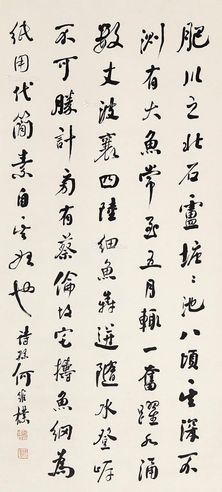 肥川之北石盧塘塘池八頃其深不
測有大魚常至五月輒一奮躍水涌
數丈波襄四陸細魚奔迸隨水登岸
不可勝計旁有蔡倫故宅擣魚網為
紙用代簡素自其始也
詩孫何維樸